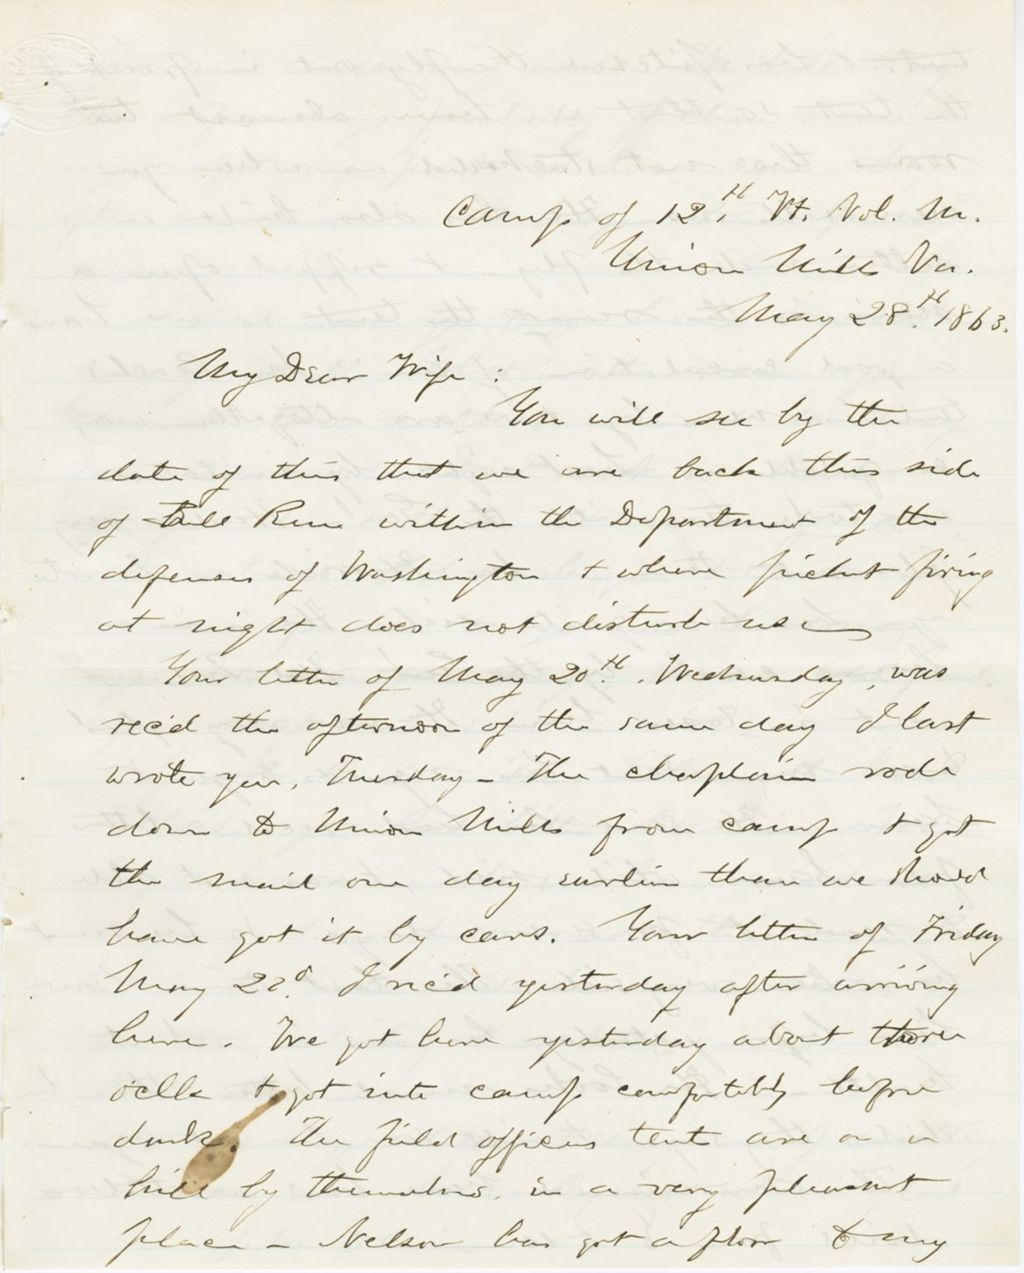 Camp of 12th Vt. Vol. M.
Union Mills Va.
May 28th 1863.
My Dear Wife:
You will see by the
date of this that we are back this side
of Bull Run within the Department of the
defenses of Washington & where picket firing
at night does not disturb us
Your letter of May 20th, Wednesday, was
rec'd the afternoon of the same day I last
wrote you, Tuesday - The chaplain rode
down to Union Mills from camp & got
the mail one day earlier than we should
have got it by cars. Your letter of Friday
May 22d. I rec'd yesterday after arriving
here. We got here yesterday about three
oclk & got into camp comfortably before
dark. The field officers tent are on a
hill by themselves, in a very pleasant
place - Nelson has got a floor to my